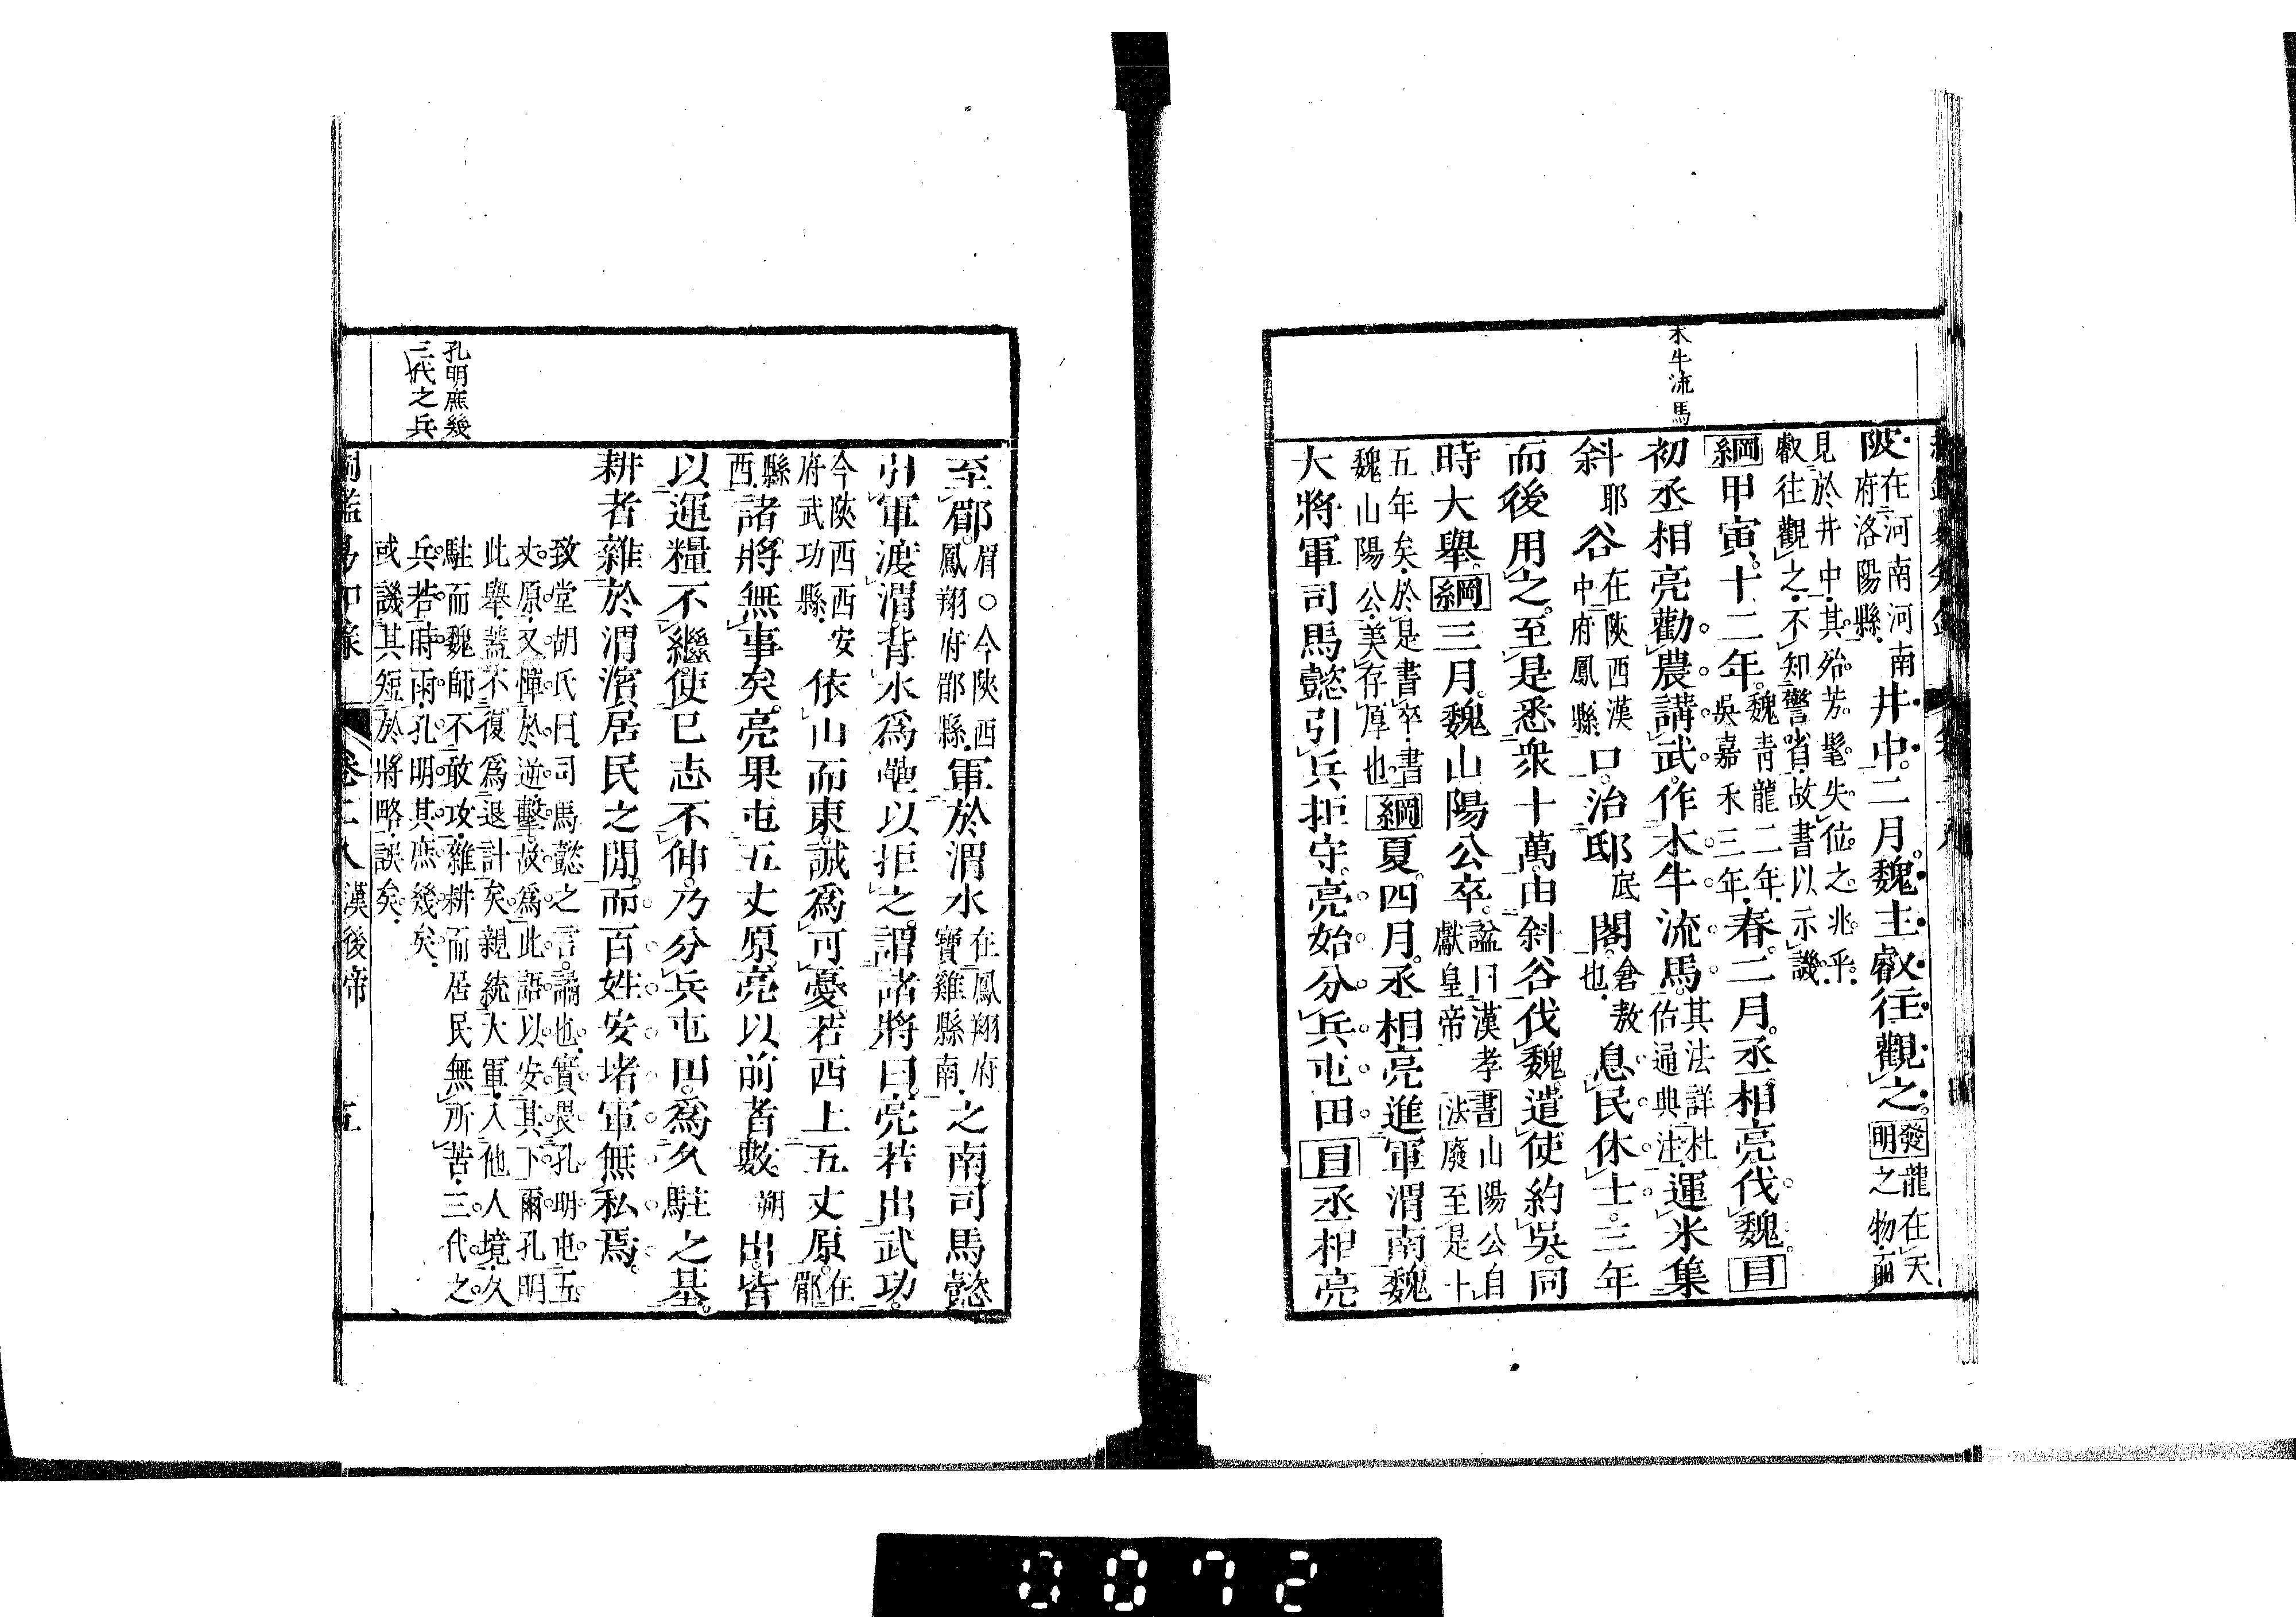 木牛流馬
陂在河南河南府洛陽縣井中二月魏主叡往觀之發明龍在天之物前
見於井中其殆芳髦失位之兆乎
叡往觀之不知警省故書以示譏
綱甲寅十二年魏青龍二年吳嘉禾三年春二月丞相亮伐魏目
初丞相亮勸農講武作木牛流馬其法詳杜佑通典注運米集
斜耶谷在陝西漢中府鳳縣口治邸底閣倉敖也息民休士三年
而後用之至是悉衆十萬由斜谷伐魏遣使約吳同
時大舉綱三月魏山陽公卒諡曰漢孝獻皇帝書法山陽公自廢至是十
五年矣於是書卒書魏山陽公美存厚也綱夏四月丞相亮進軍渭南魏
大將軍司馬懿引兵拒守亮始分兵屯田目丞相亮
孔明庶幾
三代之兵
至郿眉○今陝西鳳翔府郿縣軍於渭水在鳳翔府寶雞縣南之南司馬懿
引軍渡渭背水爲壘以拒之謂諸將曰亮若出武功
今陝西西安府武功縣依山而東誠爲可憂若西上五丈原在郿
縣西諸將無事矣亮果屯五丈原亮以前者數朔出皆
以運糧不繼使己志不伸乃分兵屯田爲久駐之基
耕者雜於渭濱居民之閒而百姓安堵軍無私焉
致堂胡氏曰司馬懿之言譎也實畏孔明屯五
丈原又憚於逆擊故爲此語以安其下爾孔明
此舉蓋不復爲退計矣親統大軍入他人境久
駐而魏師不敢攻雜耕而居民無所苦三代之
兵若時雨孔明其庶幾矣
或譏其短於將略誤矣
卷二八 漢後帝 五